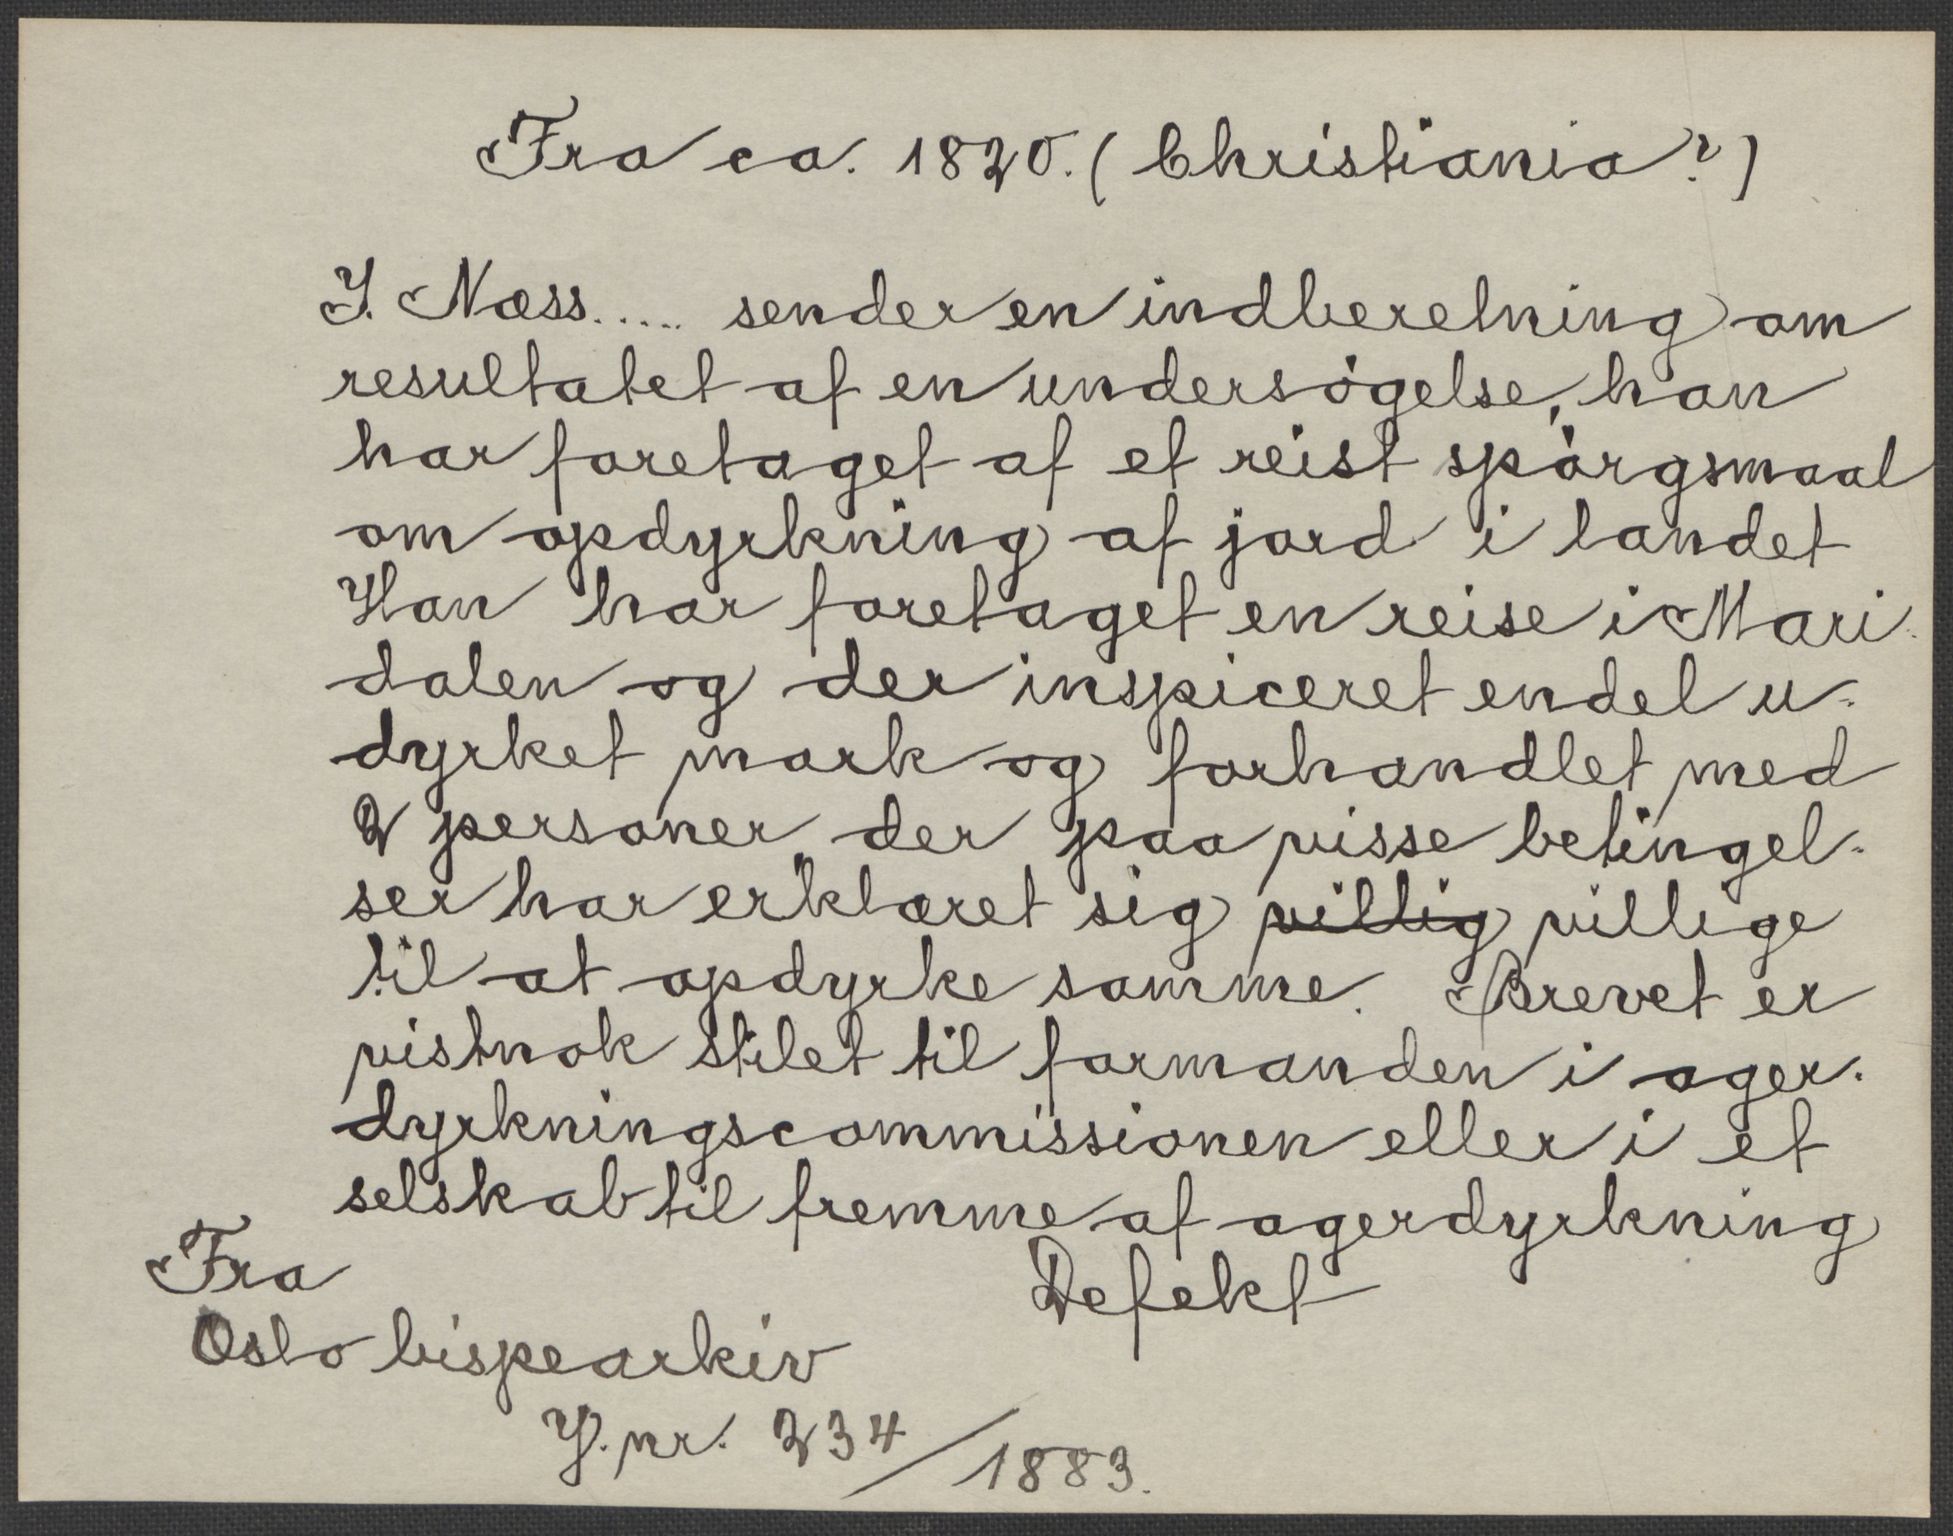 Fra ca. 1820. (Christiania?)
J. Næss..... sender en indberetning om
resultatet af en undersögelse, han
har foretaget af et reist spörgsmaal
om opdyrkning af jord i landet
Han har foretaget en reise i Mari-
dalen og der inspiceret endel u-
dyrket mark og forhandlet med
2 personer der paa visse betingel-
ser har erklæret sig villig villige
til at opdyrke samme. Brevet er
vistnok stilet til formanden i ager-
dyrkningscommissionen eller i et
selskab til fremme af agerdyrkning
Defekt
Fra
Oslo bispearkiv
J. nr. 234/1883.